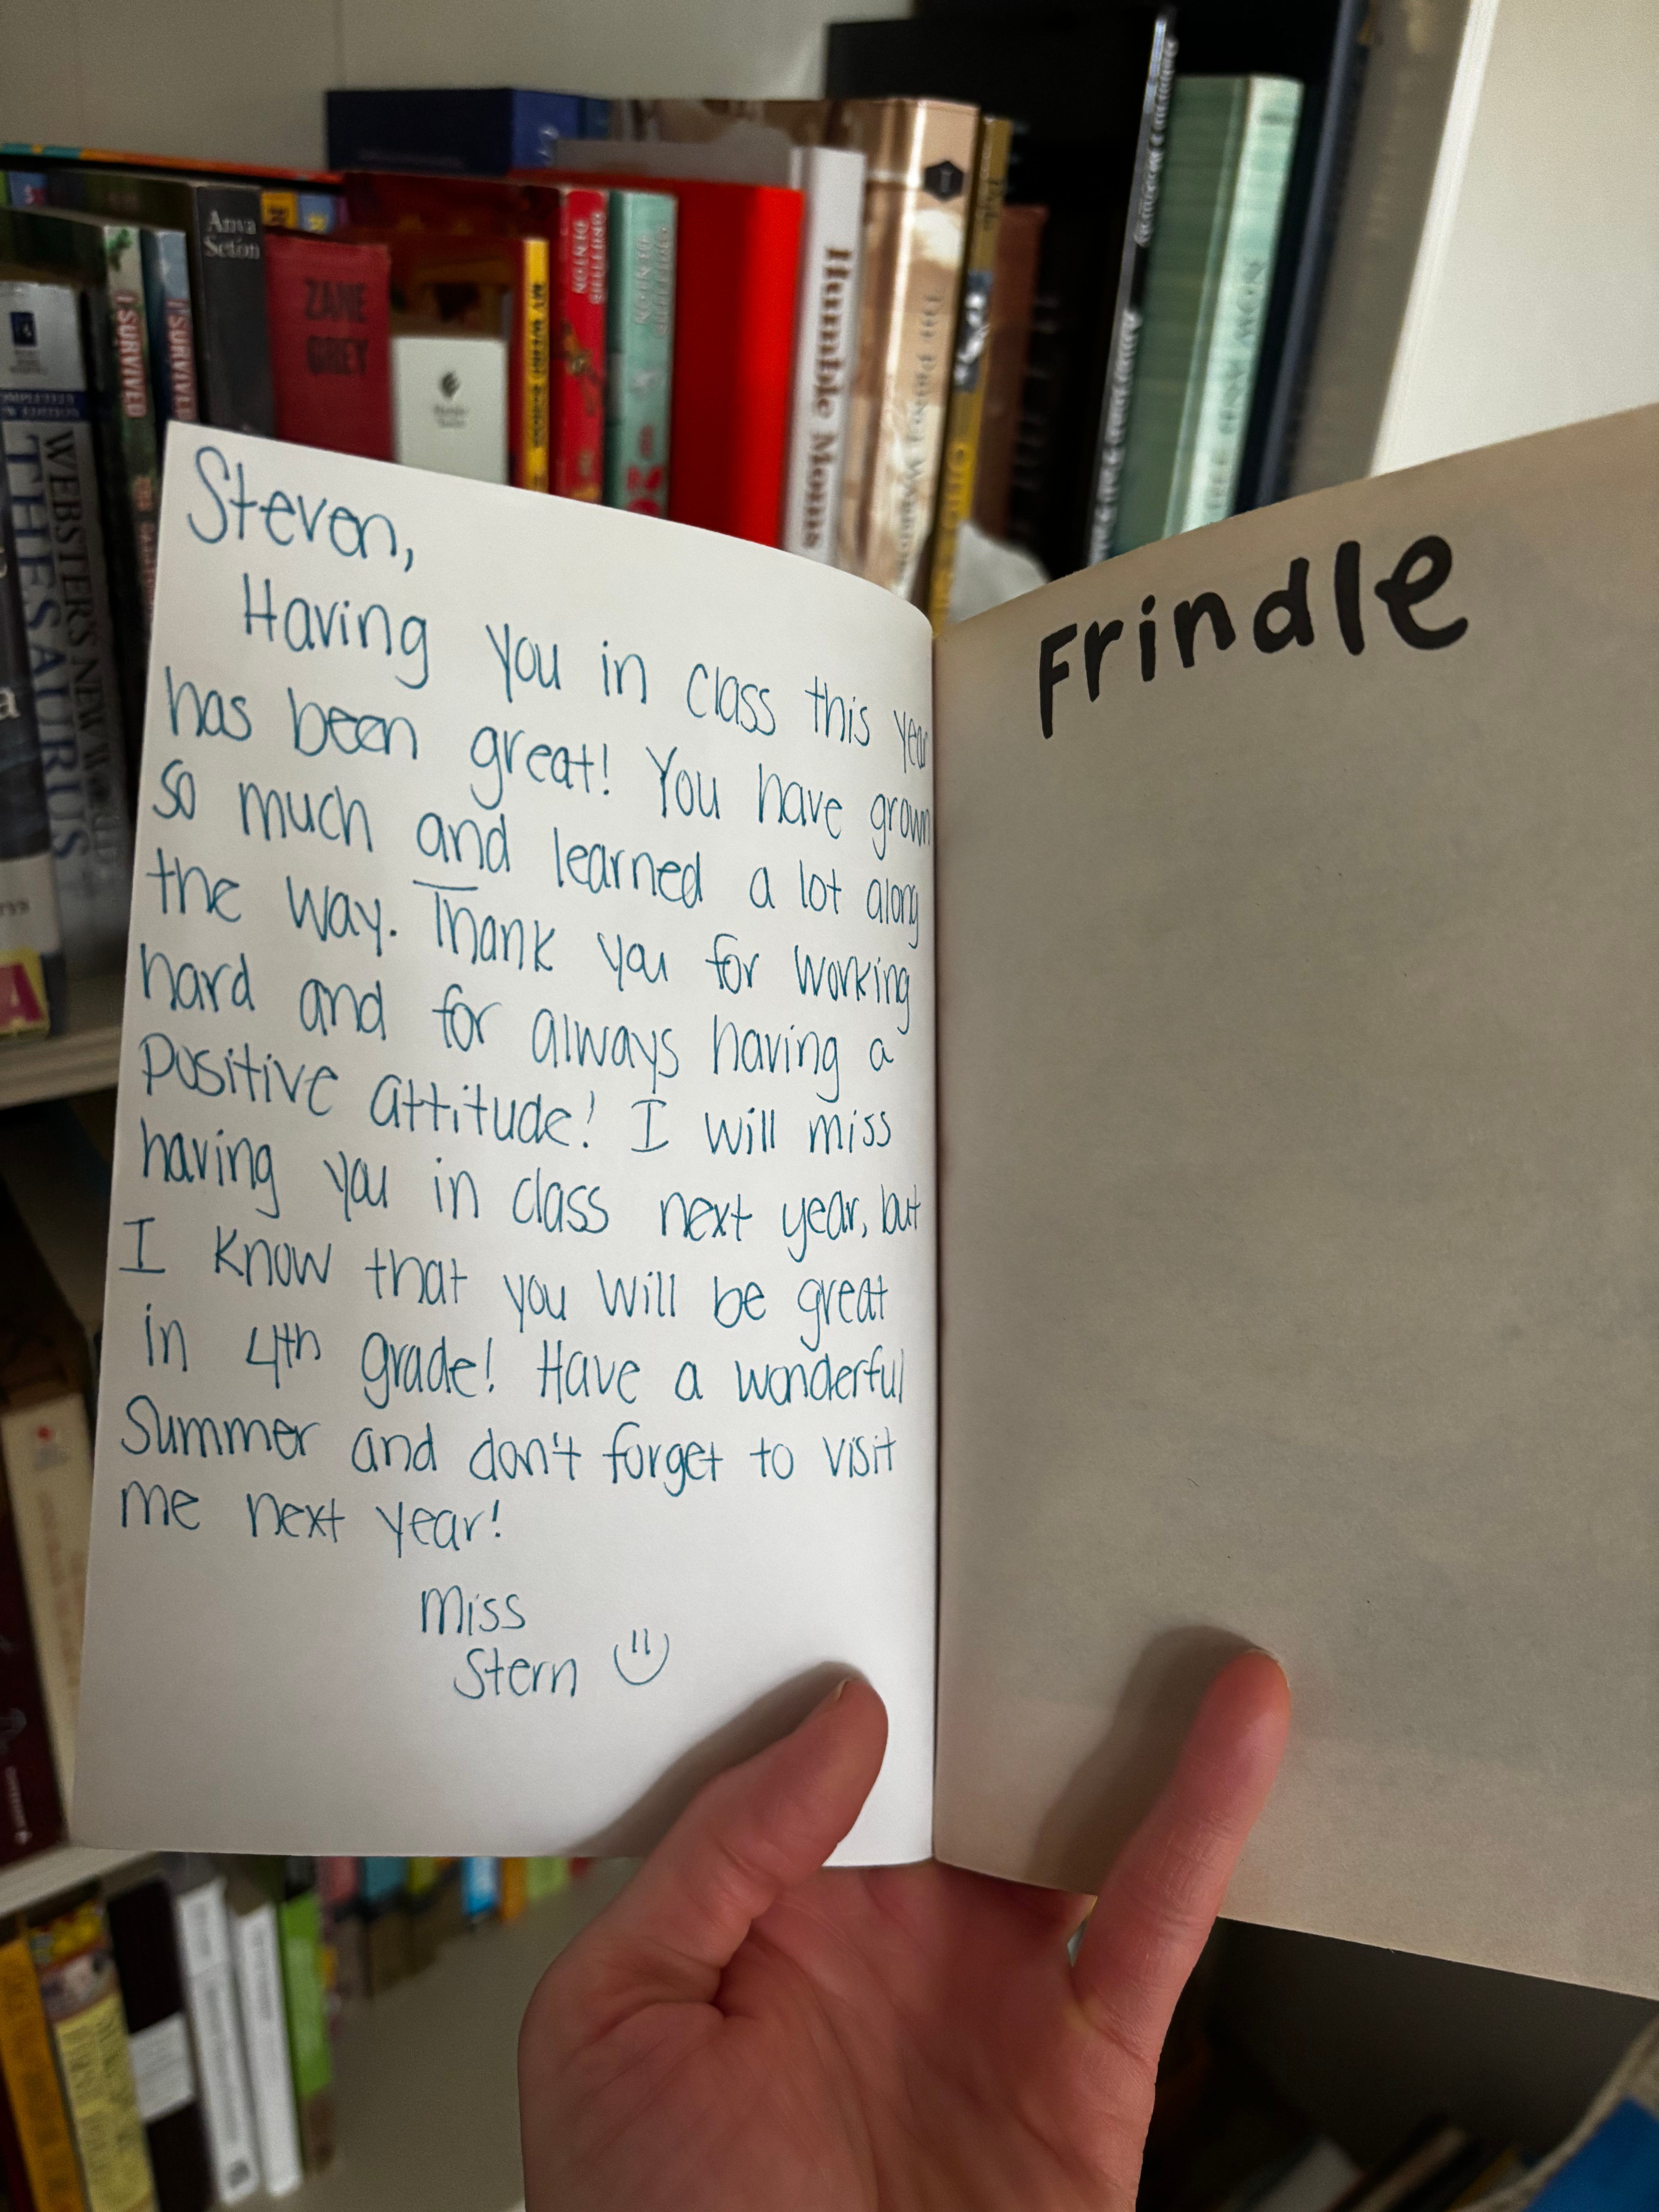 Anya
Seton
ZANE
GREY
I SURVIVED
I SURVIVED
WEBSTER'S NEW WORLD
THESAURUS
GRIFFITHS
DENTON
Humble Moms
Steven,
Having you in class this year
has been great! You have grown
so much and learned a lot along
the way. Thank you for working
hard and for always having a
positive attitude! I will miss
having you in class next year, but
I know that you will be great
in 4th grade! Have a wonderful
summer and don't forget to visit
me next year!
Miss
Stern
Frindle